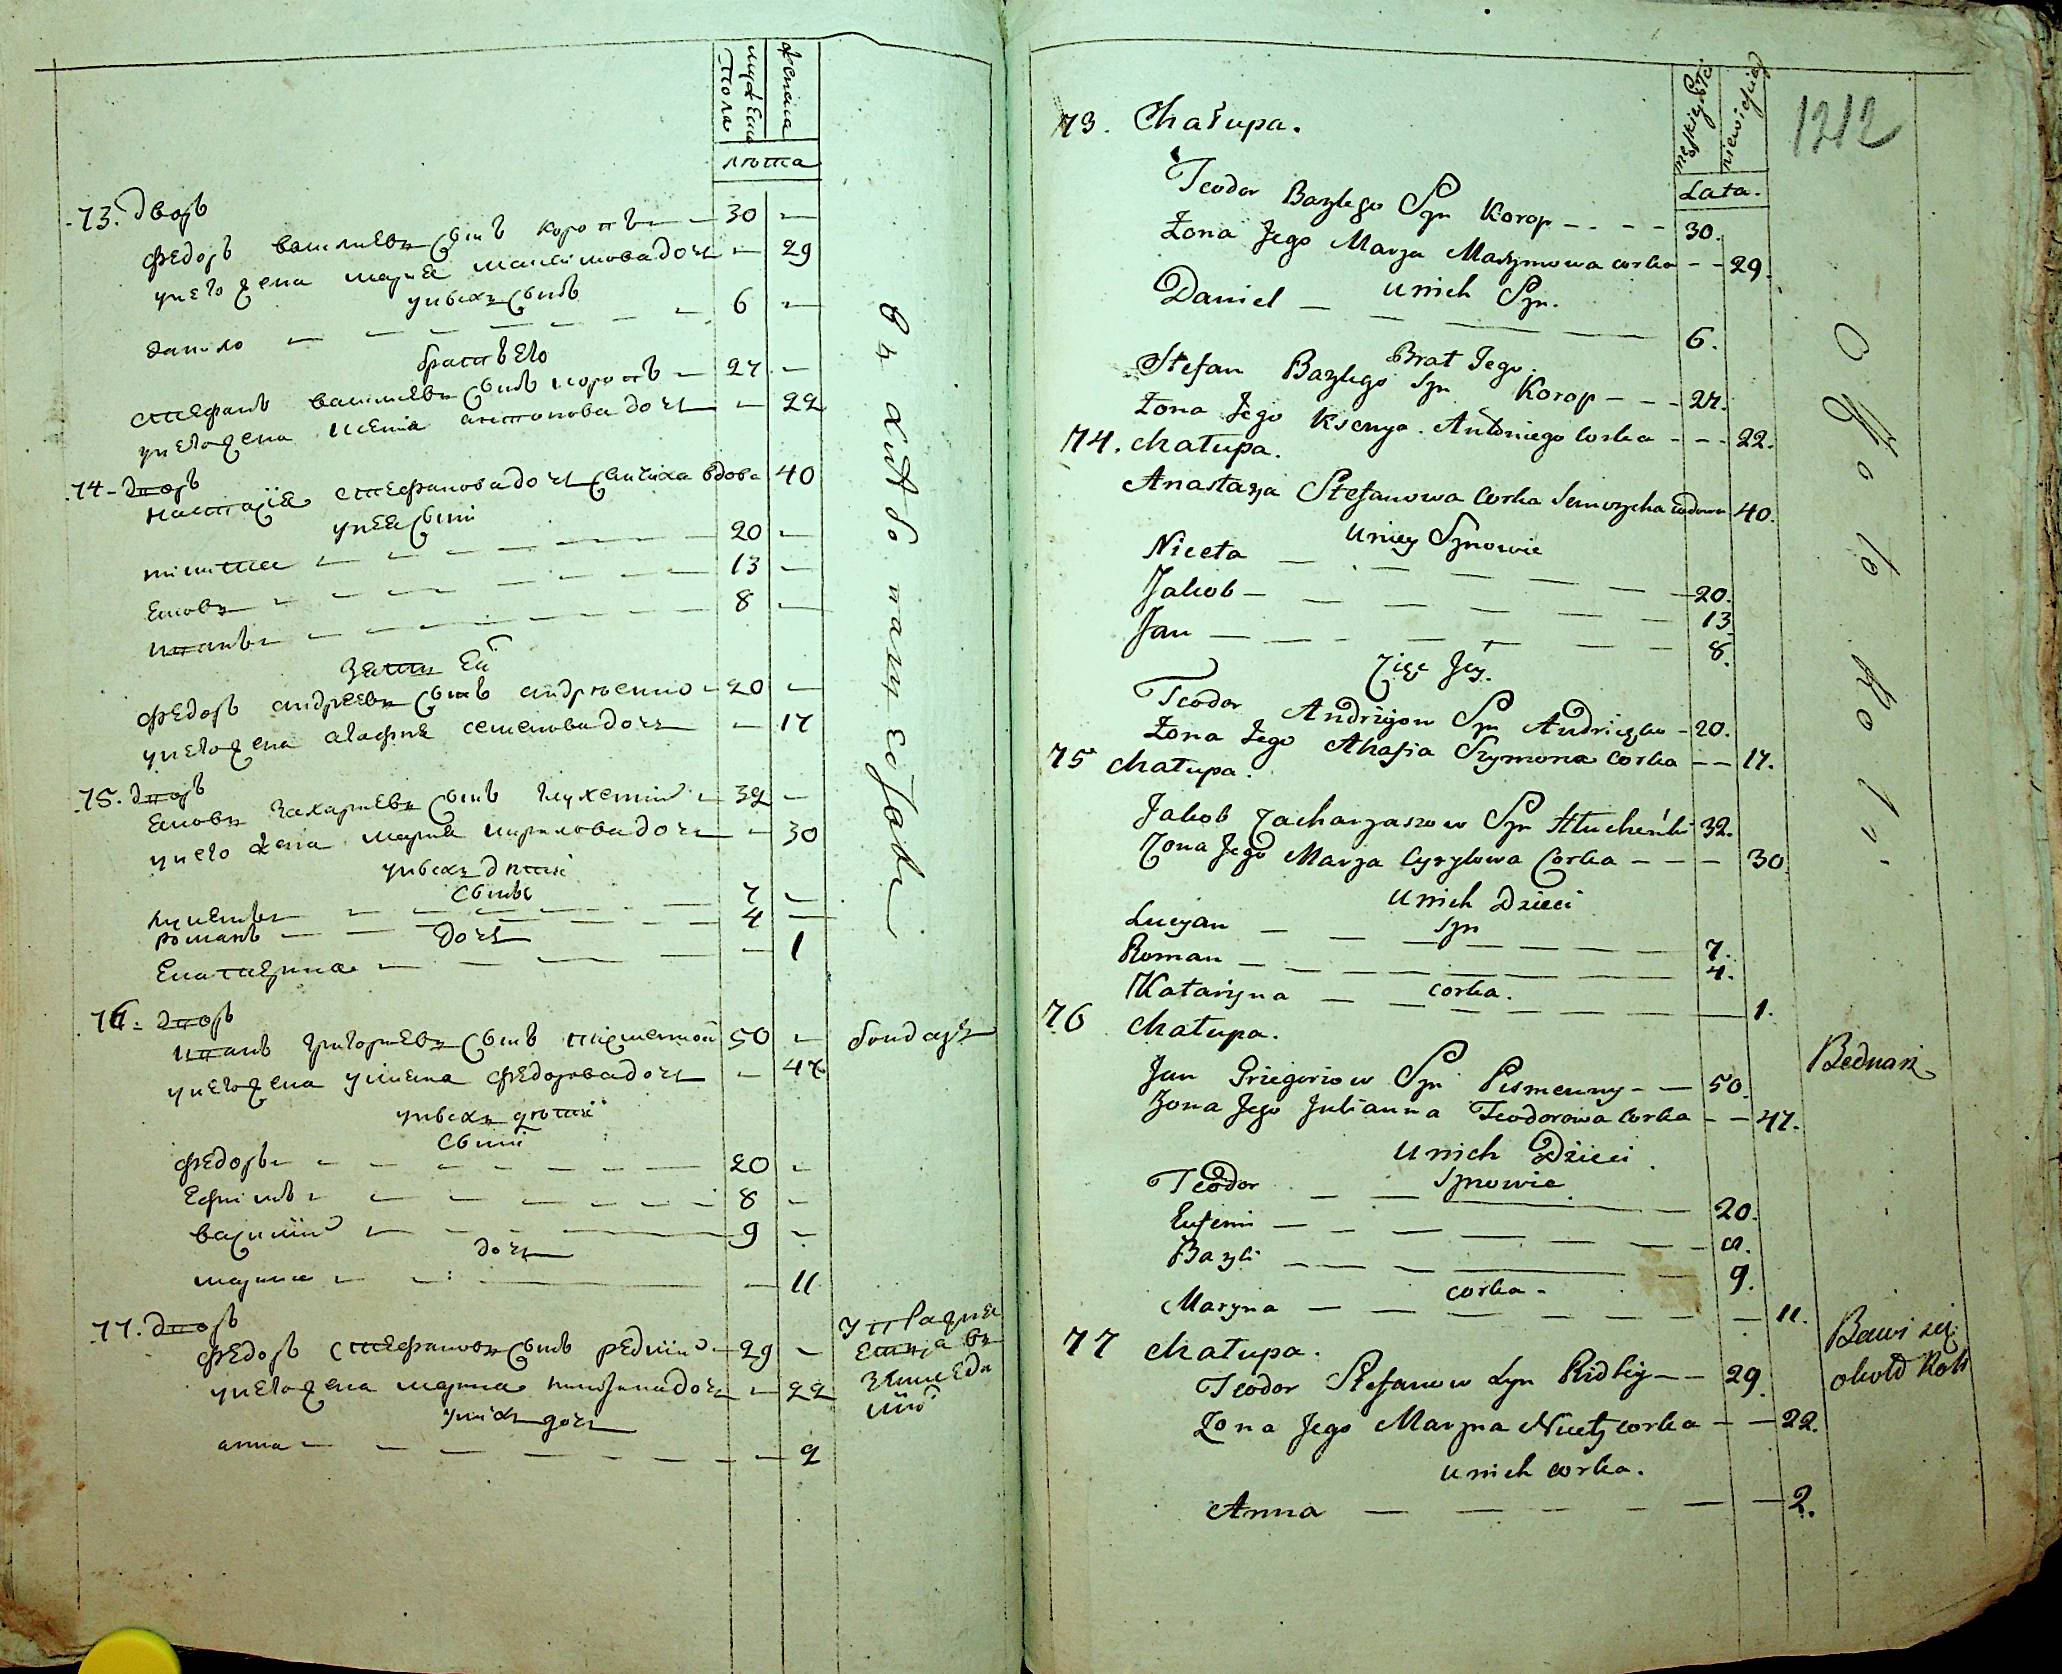 мужеска пола
женска
лѣта
73. Дворъ
Федоръ Василиевъ сынъ Коропъ — 30 —
у него жена Мария Максимова дочь — 29
у ныхъ сынъ
Данило — 6 —
братъ его
Стефанъ Василиевъ сынъ Коропъ — 27 —
у него жена Ксенія Антонова дочь — 22
74 - Дворъ
Настасія Стефанова дочь вдова 40
у нея сыни
Микита — 20 —
Яковъ — 13 —
Иванъ — 8 —
Зять ей
Федоръ Андреевъ сынъ Андриенко — 20 —
у него жена Агафия Семенова дочь — 17
75. Дворъ
Яковъ Захариевъ сынъ — 32 —
у него жена Мария Кирилова дочь — 30
у ныхъ дѣти
сынъ
Лукіянъ — 7 —
Романъ — 4 —
дочь
Екатерина — 1
76. Дворъ
Иванъ Григориевъ сынъ Писменной 50 —
у него жена Улияна Федорова дочь — 47
у ныхъ дѣти
сыни
Федоръ — 20 —
Ефимъ — 8 —
Василий — 9 —
дочь
Марина — 11
77. Дворъ
Федоръ Стефановъ сынъ Редкий — 29 —
у него жена Марина Никитина дочь — 22
у ныхъ дочь
Анна — 2
бондаръ
1212
męskiey płci
niewieściey
Lata.
73. Chałupa.
Teodor Bazylego Syn Korop - - - - 30.
Żona Jego Marya Maxymowa corka - - 29.
U nich Syn.
Daniel — 6.
Brat Jego.
Stefan Bazylego Syn Korop - - - 27.
Żona Jego Ksenya Antoniego Corka - - - 22.
74. Chałupa.
Anastazya Stefanowa Corka wdowa 40.
U niey Synowie
Niceta — 20.
Jakob — 13
Jan — 8.
Zięć Jey.
Teodor Andrzyow Syn Andrieyko - 20.
Żona Jego Ahafia Szymona Corka - - 17.
75 Chałupa.
Jakob Zacharyaszow Syn Hłucheńki 32.
Żona Jego Marya Cyrylowa Corka - - - 30
U nich Dzieci
Syn
Lucyan — 7.
Roman — 4.
corka.
Katarzyna — 1.
76 Chałupa.
Jan Grzegorzow Syn Pismenny - - 50.
Żona Jego Julianna Teodorowa Corka - - 47.
U nich Dzieci
Synowie
Teodor — 20.
Eufemi — 8.
Bazyli — 9.
corka -
Maryna — 11.
77 Chałupa.
Teodor Stefanow Syn Ridkiy - - 29.
Żona Jego Maryna Nicety corka - - 22.
U nich corka.
Anna — 2.
Około Roli
Bednarz
Bawi się
około Roli